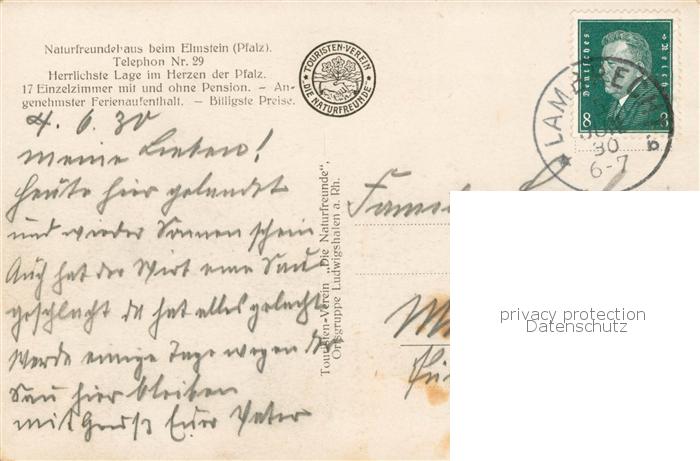 Naturfreundehaus beim Elmstein (Pfalz).
Telephon Nr. 29
Herrlichste Lage im Herzen der Pfalz.
17 Einzelzimmer mit und ohne Pension. – An-
genehmster Ferienaufenthalt. – Billigste Preise.
TOURISTEN-VEREIN
"DIE NATURFREUNDE"
Deutsches Reich
8 8
LAMBRECHT
JUN
30
6-7
b
4. 6. 30
meine Lieben!
Heute hier gelandet
und wieder Sonnenschein
Auch hat der Wirt eine Sau
geschlacht da hat alles gelacht
Werde einige Tage wegen der
Sau hier bleiben
mit Gruß Euer Vater
Touristen-Verein „Die Naturfreunde",
Ortsgruppe Ludwigshafen a. Rh.
privacy protection
Datenschutz